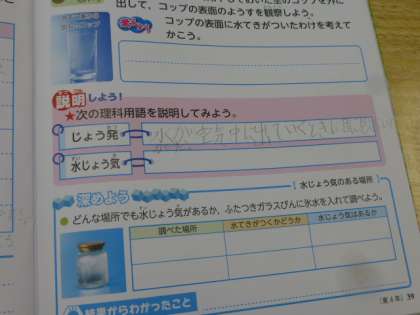 出して、コップの表面のようすを観察しよう。
コップの表面に水てきがついたわけを考えて
かこう。
説明しよう!
★次の理科用語を説明してみよう。
じょう発
水が空気中に出ていくときに
水じょう気
深めよう
[水じょう気のある場所]
●どんな場所でも水じょう気があるか、ふたつきガラスびんに氷水を入れて調べよう。
調べた場所
水てきがつくかどうか
水じょう気はあるか
結果からわかったこと
39